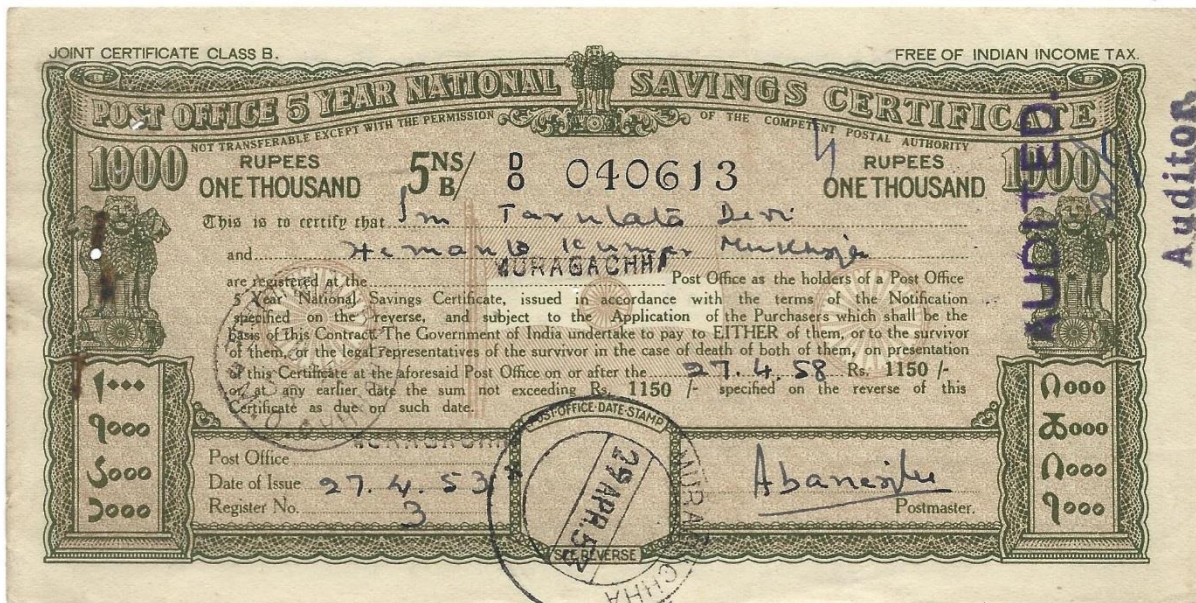 JOINT CERTIFICATE CLASS B.
FREE OF INDIAN INCOME TAX.
POST OFFICE 5 YEAR NATIONAL SAVINGS CERTIFICATE
NOT TRANSFERABLE EXCEPT WITH THE PERMISSION OF THE COMPETENT POSTAL AUTHORITY
1000 RUPEES ONE THOUSAND
5NS/B/ D/8 040613
RUPEES ONE THOUSAND 1000
This is to certify that Sm Tarulata Devi
and Hemanta Kumar Mukherje
are registered at the MURAGACHHA Post Office as the holders of a Post Office
5 Year National Savings Certificate, issued in accordance with the terms of the Notification
specified on the reverse, and subject to the Application of the Purchasers which shall be the
basis of this Contract. The Government of India undertake to pay to EITHER of them, or to the survivor
of them, or the legal representatives of the survivor in the case of death of both of them, on presentation
of this Certificate at the aforesaid Post Office on or after the 27.4.58 Rs. 1150/-
or at any earlier date the sum not exceeding Rs. 1150/- specified on the reverse of this
Certificate as due on such date.
१०००
৭০০০
১০০০
Post Office MURAGACHHA
Date of Issue 27.4.53
Register No. 3
POST-OFFICE-DATE-STAMP
MURAGACHHA
29 APR. 53
SEE REVERSE
Abanerjee
Postmaster.
AUDITED.
Auditor